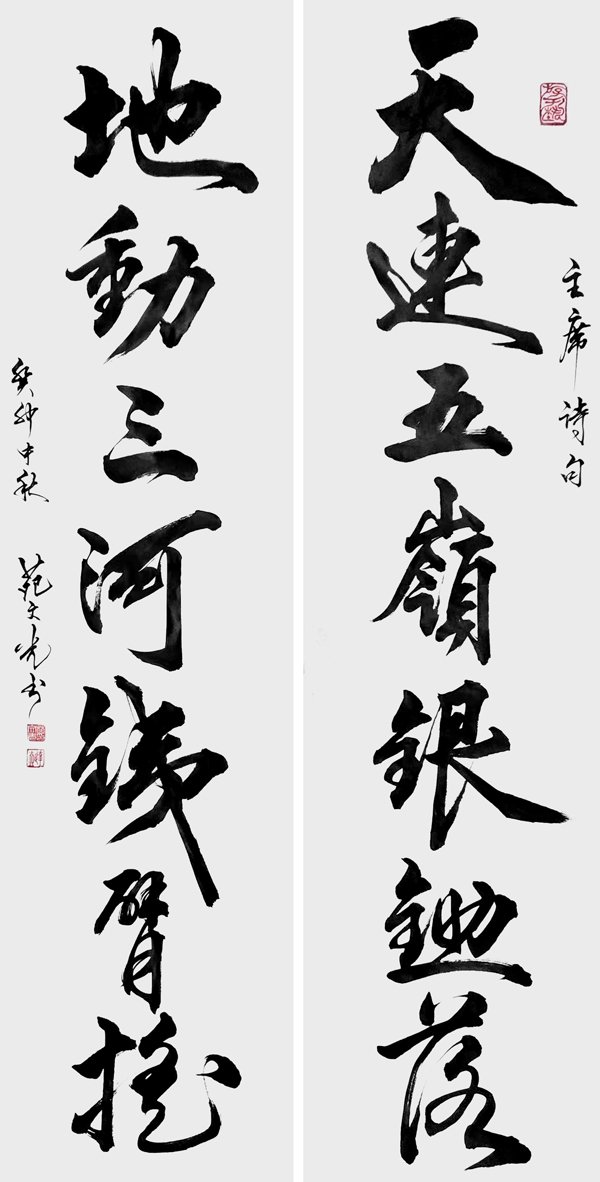 主席诗句
天連五嶺銀鋤落
地動三河鐵臂摇
癸卯中秋 范文光书